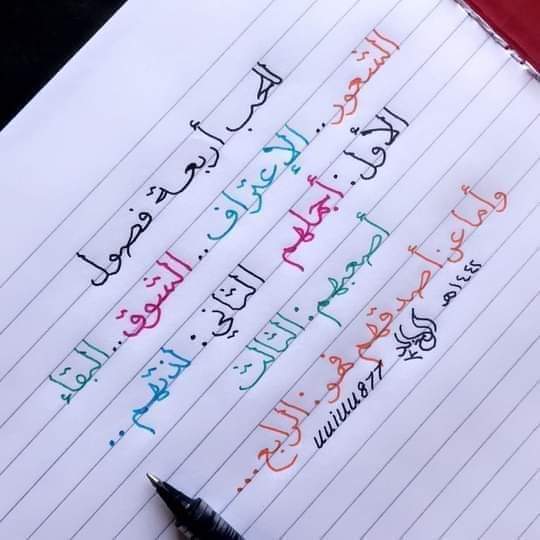 الحب أربعة فصول
الشعور .. الإعتراف .. الشوق .. البقاء
الأول : أجملهم الثاني : لذتهم ..
أصعبهم : الثالث
وأما عن أصدقهم فهو : الرابع ...
١٤٤٢هـ
uuiuu877